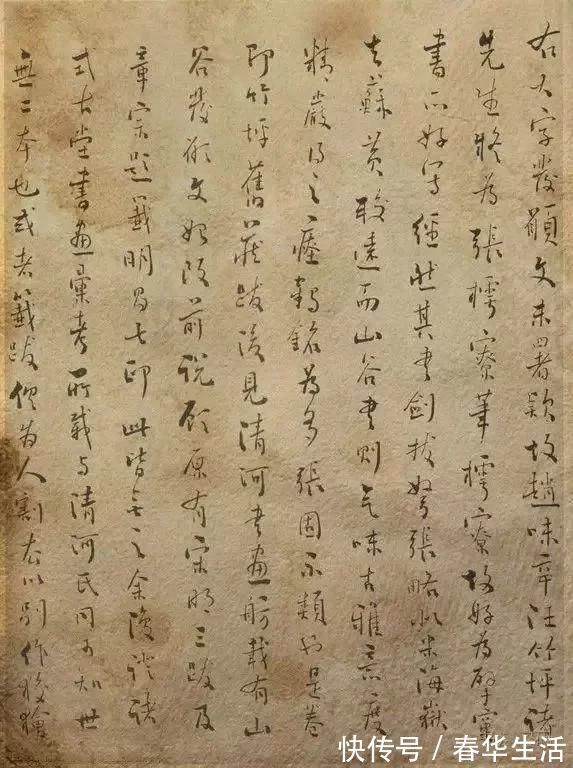 右大字發願文未署款故趙味辛汪竹坪諸
先生疑為張樗寮筆樗寮故好為擘窠
書亦好寫經然其書劍拔弩張略似米海嶽
去蘇黃較遠而山谷書則氣味古雅意度
精嚴得之瘞鶴銘為多張固不類也是卷
即竹坪舊藏跋後見清河書畫舫載有山
谷發願文始改前說顧原有宋明三跋及
章宗題籤明昌七印此皆無之余復證諸
式古堂書畫彙考所載與清河氏同可知世
無二本也或者籤跋僅為人割去以別作狡獪
快传号 / 春华生活